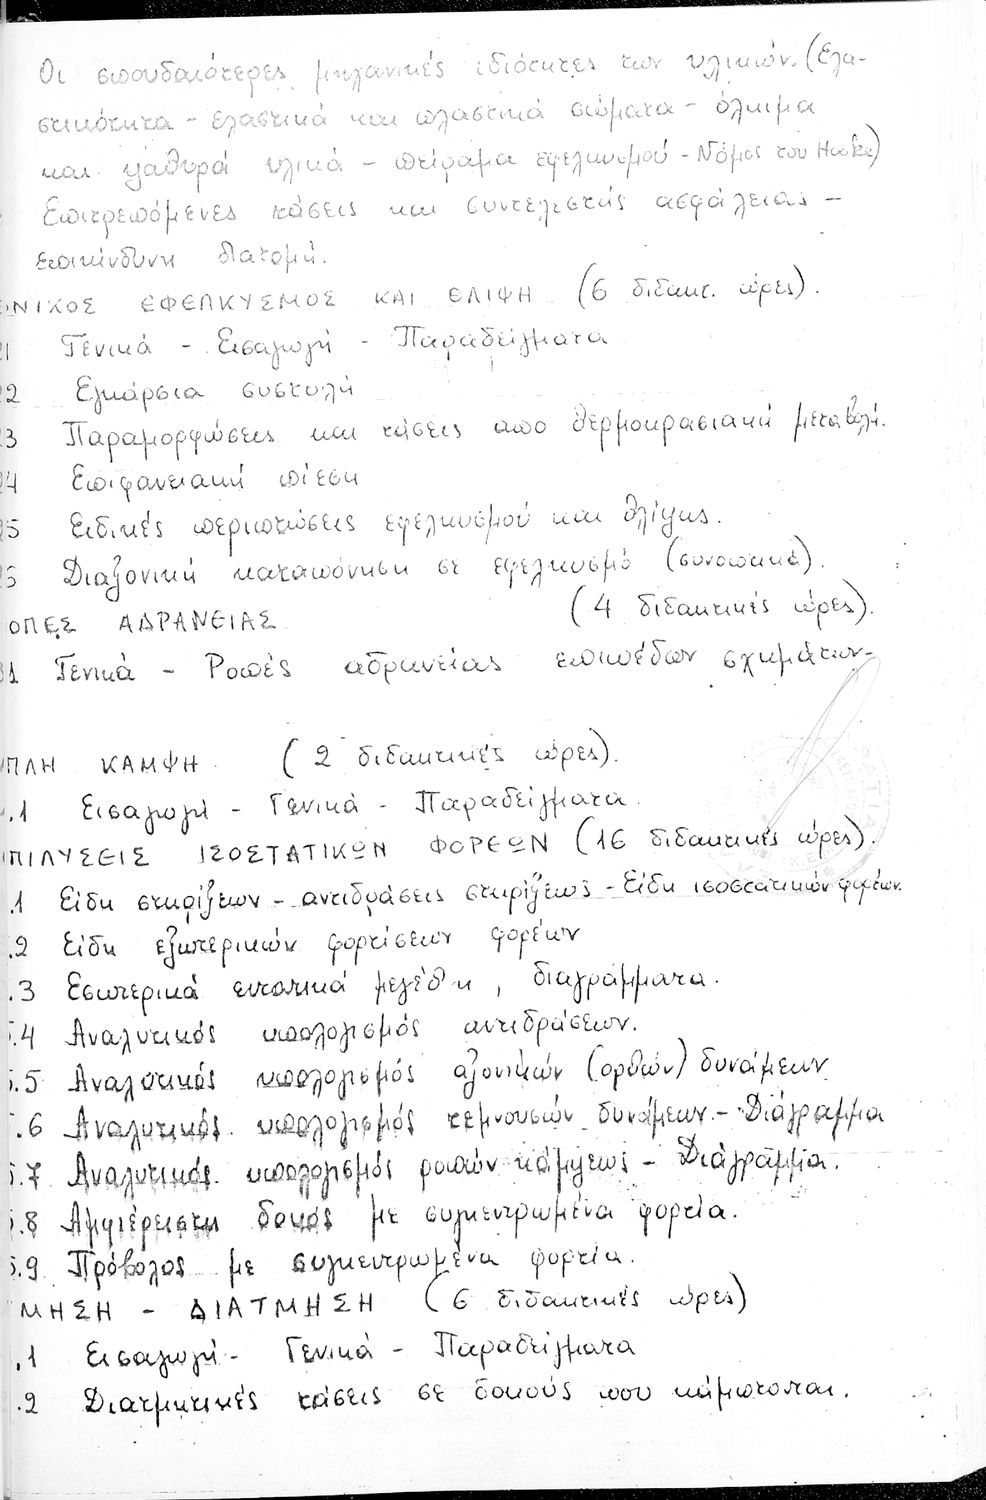 Οι σπουδαιότερες μηχανικές ιδιότητες των υλικών. (Ελα-
στικότητα - ελαστικά και πλαστικά σώματα - όλκιμα
και ψαθυρά υλικά - πείραμα εφελκυσμού - Νόμος του Hooke)
Επιτρεπόμενες τάσεις και συντελεστής ασφάλειας -
επικίνδυνη διατομή.
ΟΝΙΚΟΣ ΕΦΕΛΚΥΣΜΟΣ ΚΑΙ ΘΛΙΨΗ (6 διδακτ. ώρες).
21 Γενικά - Εισαγωγή - Παραδείγματα
22 Εγκάρσια συστολή
23 Παραμορφώσεις και τάσεις απο θερμοκρασιακή μεταβολή.
24 Επιφανειακή πίεση
25 Ειδικές περιπτώσεις εφελκυσμού και θλίψης.
26 Διαξονική καταπόνηση σε εφελκυσμό (συνοπτικά).
ΟΠΕΣ ΑΔΡΑΝΕΙΑΣ (4 διδακτικές ώρες).
31 Γενικά - Ροπές αδρανείας επιπέδων σχημάτων-
ΠΛΗ ΚΑΜΨΗ (2 διδακτικές ώρες).
.1 Εισαγωγή - Γενικά - Παραδείγματα.
ΠΙΛΥΣΕΙΣ ΙΣΟΣΤΑΤΙΚΩΝ ΦΟΡΕΩΝ (16 διδακτικές ώρες).
.1 Είδη στηρίξεων - αντιδράσεις στηρίξεως - Είδη ισοστατικών φορέων.
.2 Είδη εξωτερικών φορτίσεων φορέων
.3 Εσωτερικά εντατικά μεγέθη, διαγράμματα.
5.4 Αναλυτικός υπολογισμός αντιδράσεων.
5.5 Αναλυτικός υπολογισμός αξονικών (ορθών) δυνάμεων
5.6 Αναλυτικός υπολογισμός τεμνουσών δυνάμεων - Διάγραμμα
5.7 Αναλυτικός υπολογισμός ροπών κάμψεως - Διάγραμμα.
5.8 Αμφιέρειστη δοκός με συγκεντρωμένα φορτία.
5.9 Πρόβολος με συγκεντρωμένα φορτία.
ΜΗΣΗ - ΔΙΑΤΜΗΣΗ (6 διδακτικές ώρες)
.1 Εισαγωγή - Γενικά - Παραδείγματα
.2 Διατμητικές τάσεις σε δοκούς που κάμπτονται.